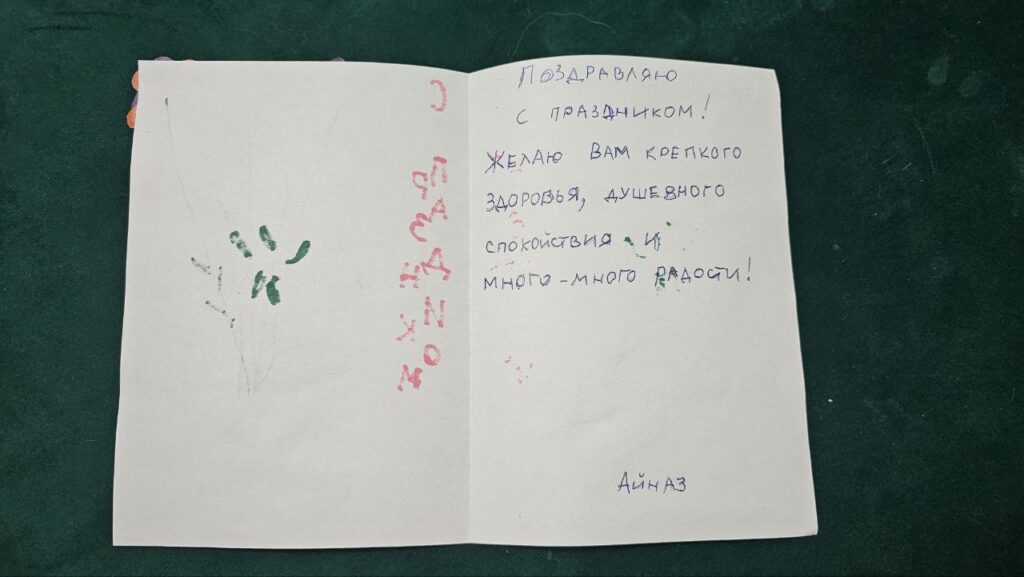 С
Поздравляю
с праздником!
Желаю Вам крепкого
здоровья, душевного
спокойствия и
много-много радости!
Айназ